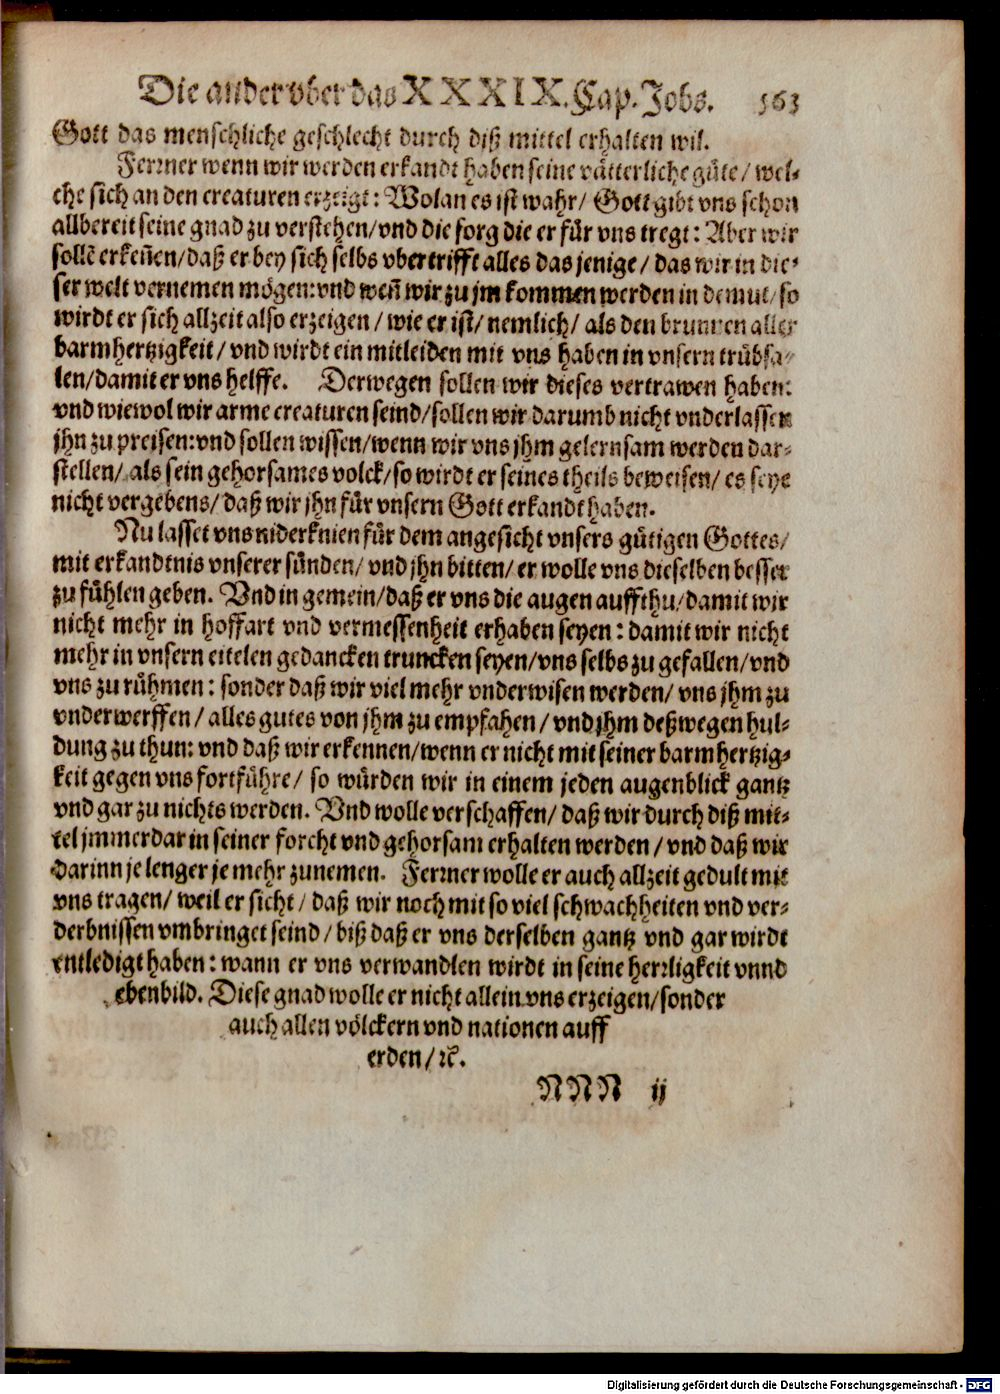 Die ander vber das XXXIX. Cap. Jobs. 563
Gott das menschliche geschlecht durch diß mittel erhalten wil.
Ferrner wenn wir werden erkandt haben seine vätterliche güte / wel-
che sich an den creaturen erzeigt : Wolan es ist wahr / Gott gibt vns schon
allbereit seine gnad zu verstehen / vnd die sorg die er für vns tregt : Aber wir
sollē erkeñen / daß er bey sich selbs vbertrifft alles das jenige / das wir in die-
ser welt vernemen mögen: vnd weñ wir zu jm kommen werden in demut / so
wirdt er sich allzeit also erzeigen / wie er ist / nemlich / als den brunnen aller
barmhertzigkeit / vnd wirdt ein mitleiden mit vns haben in vnsern trübsa-
len / damit er vns helffe. Derwegen sollen wir dieses vertrawen haben:
vnd wiewol wir arme creaturen seind / sollen wir darumb nicht vnderlassen
jhn zu preisen: vnd sollen wissen / wenn wir vns jhm gelernsam werden dar-
stellen / als sein gehorsames volck / so wirdt er seines theils beweisen / es seye
nicht vergebens / daß wir jhn für vnsern Gott erkandt haben.
Nu lasset vns niderknien für dem angesicht vnsers gütigen Gottes /
mit erkandtnis vnserer sünden / vnd jhn bitten / er wolle vns dieselben besser
zu fühlen geben. Vnd in gemein / daß er vns die augen auffthu / damit wir
nicht mehr in hoffart vnd vermessenheit erhaben seyen : damit wir nicht
mehr in vnsern eitelen gedancken truncken seyen / vns selbs zu gefallen / vnd
vns zu rühmen : sonder daß wir viel mehr vnderwisen werden / vns jhm zu
vnderwerffen / alles gutes von jhm zu empfahen / vnd jhm deßwegen hul-
dung zu thun: vnd daß wir erkennen / wenn er nicht mit seiner barmhertzig-
keit gegen vns fortführe / so würden wir in einem jeden augenblick gantz
vnd gar zu nichts werden. Vnd wolle verschaffen / daß wir durch diß mit-
tel jmmerdar in seiner forcht vnd gehorsam erhalten werden / vnd daß wir
darinn je lenger je mehr zunemen. Ferrner wolle er auch allzeit gedult mit
vns tragen / weil er sicht / daß wir noch mit so viel schwachheiten vnd ver-
derbnissen vmbringet seind / biß daß er vns derselben gantz vnd gar wirdt
entledigt haben : wann er vns verwandlen wirdt in seine herrligkeit vnnd
ebenbild. Diese gnad wolle er nicht allein vns erzeigen / sonder
auch allen völckern vnd nationen auff
erden / ꝛc.
NNN ij
Digitalisierung gefördert durch die Deutsche Forschungsgemeinschaft - DFG